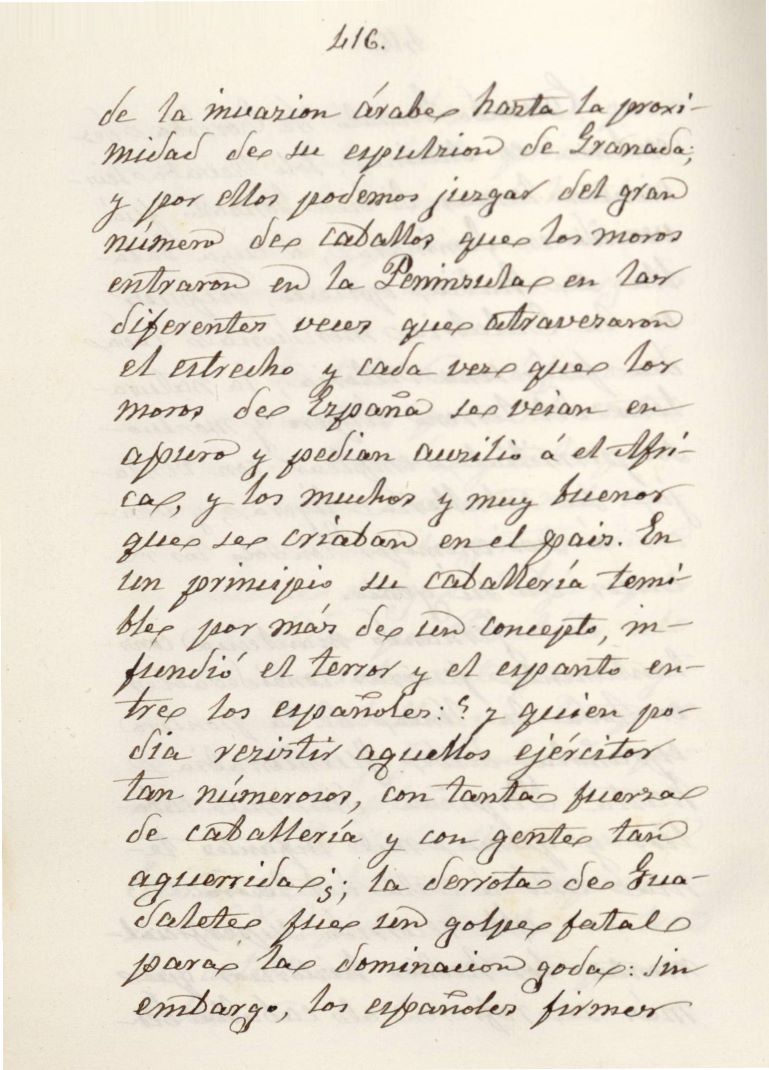 416.
de la invazion árabe hasta la proxi-
midad de su espulzion de Granada;
y por ellos podemos juzgar del gran
número de caballos que los moros
entraron en la Peninzula en las
diferentes veces que atravezaron
el estrecho y cada vez que los
moros de España se veian en
apuro y pedian auzilio á el Afri-
ca, y los muchos y muy buenos
que se criaban en el pais. En
un principio su caballería temi-
ble por más de un concepto, in-
fundió el terror y el espanto en-
tre los españoles: ? y quien po-
dia rezistir aquellos ejércitos
tan númerosos, con tanta fuerza
de caballería y con gente tan
aguerrida¿; la derrota de Gua-
dalete fue un golpe fatal
para la dominacion goda: sin
embargo, los españoles firmes